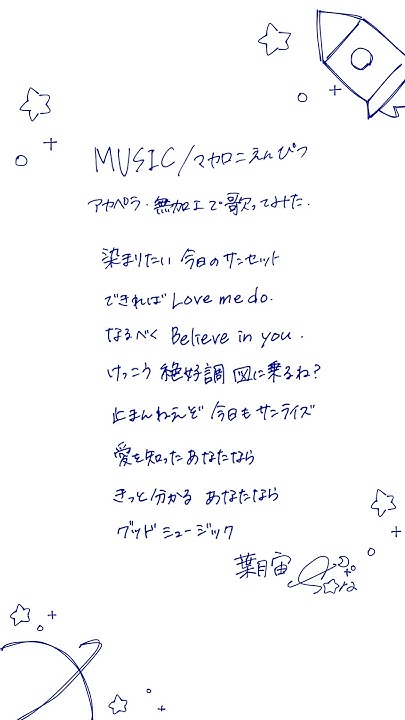 MUSIC/マカロニえんぴつ
アカペラ・無加工で歌ってみた.
染まりたい 今日のサンセット
できれば Love me do.
なるべく Believe in you.
けっこう 絶好調 図に乗るね?
止まんねえぞ 今日もサンライズ
愛を知ったあなたなら
きっと分かる あなたなら
グッドミュージック
葉月宙